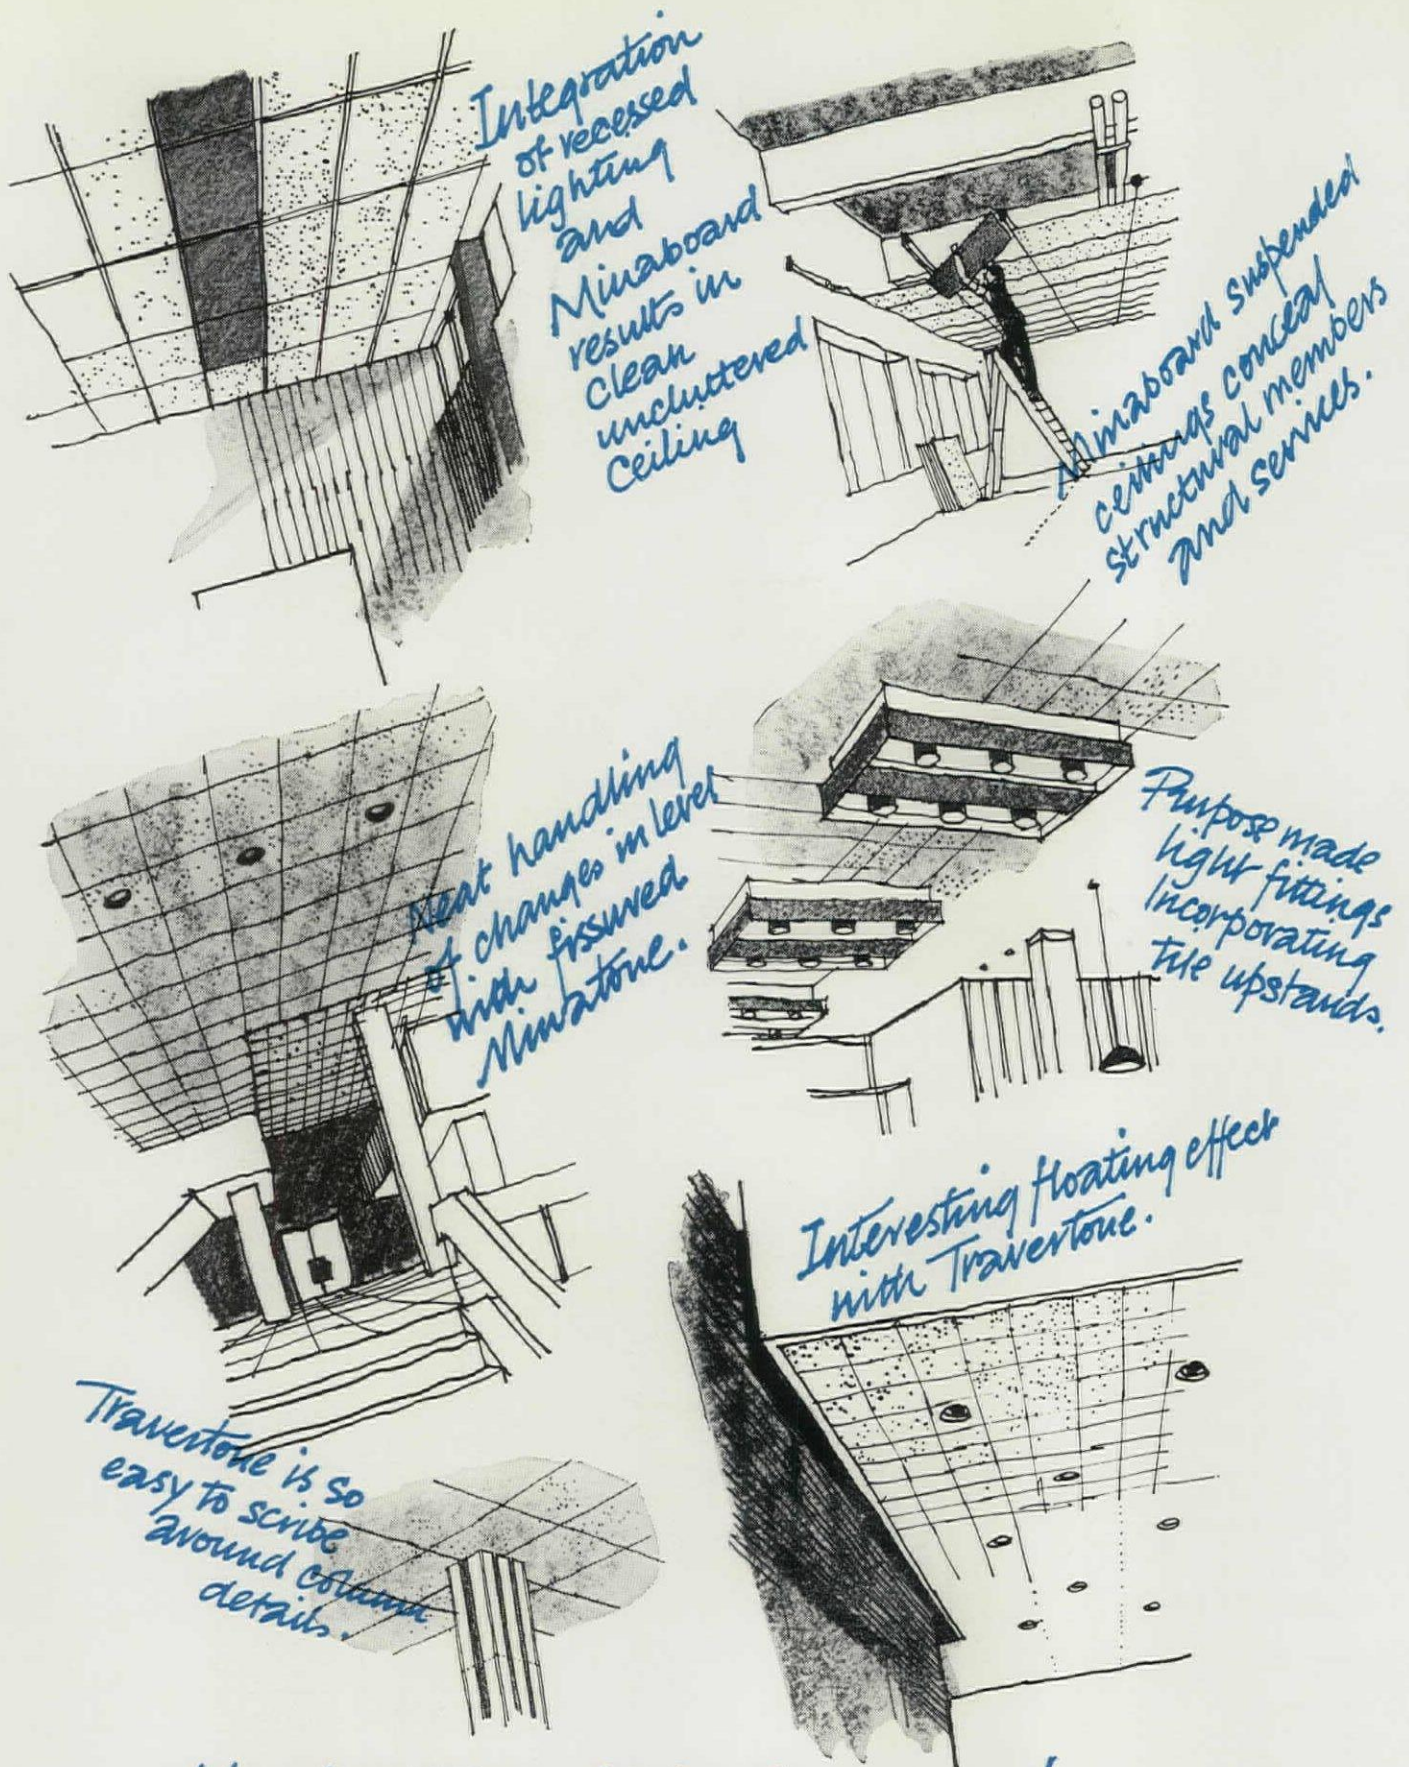 Integration
of recessed
lighting
and
Minaboard
results in
clean
uncluttered
ceiling
Minaboard suspended
ceilings conceal
structural members
and services.
Neat handling
of changes in level
with fissured
Minatone.
Purpose made
light fittings
incorporating
tile upstands.
Interesting floating effect
with Travertone.
Travertone is so
easy to scribe
around column
details.